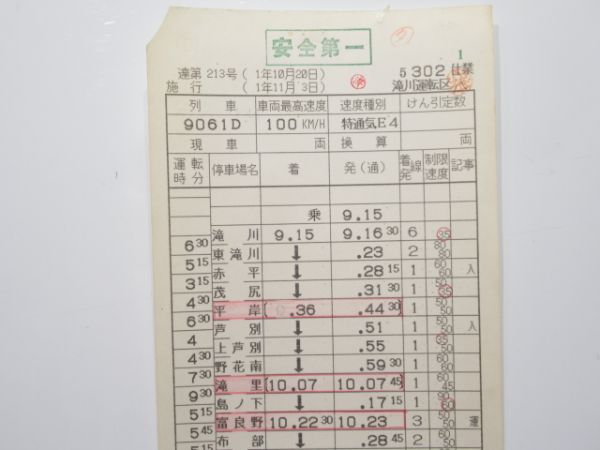 安全第一
1
達第 213号 ( 1年10月20日)
施行 ( 1年11月 3日)
5 302 仕業
滝川運転区
列車 車両最高速度 速度種別 けん引定数
9061D 100 KM/H 特通気E4
現車 両 換算 両
運転時分 停車場名 着 発(通) 着発線 制限速度 記事
乗 9.15
滝川 9.15 9.16 30 6 35
6 30
東滝川 ↓ .23 2 80 80
5 15
赤平 ↓ .28 15 1 60 60 入
3 15
茂尻 ↓ .31 30 1 50 35
4 30
平岸 .36 .44 30 1 50 50
6 30
芦別 ↓ .51 1 50 50 入
4
上芦別 ↓ .55 1 35 50
4 30
野花南 ↓ .59 30 1 50 50
7 30
滝里 10.07 10.07 45 1 60 45
9 30
島ノ下 ↓ .17 15 1 90 60
5 15
富良野 10.22 30 10.23 3 50 50 運
5 45
布部 ↓ .28 45 2 60
5 15